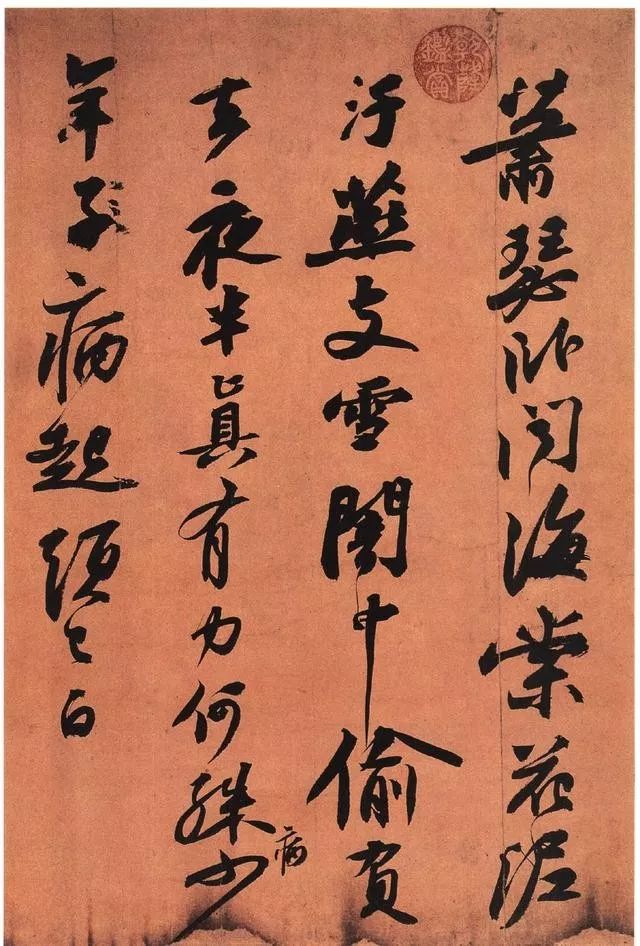 乾隆鑑賞
蕭瑟卧聞海棠花泥
汙燕支雪闇中偷負
去夜半真有力何殊病少
年子病起頭已白